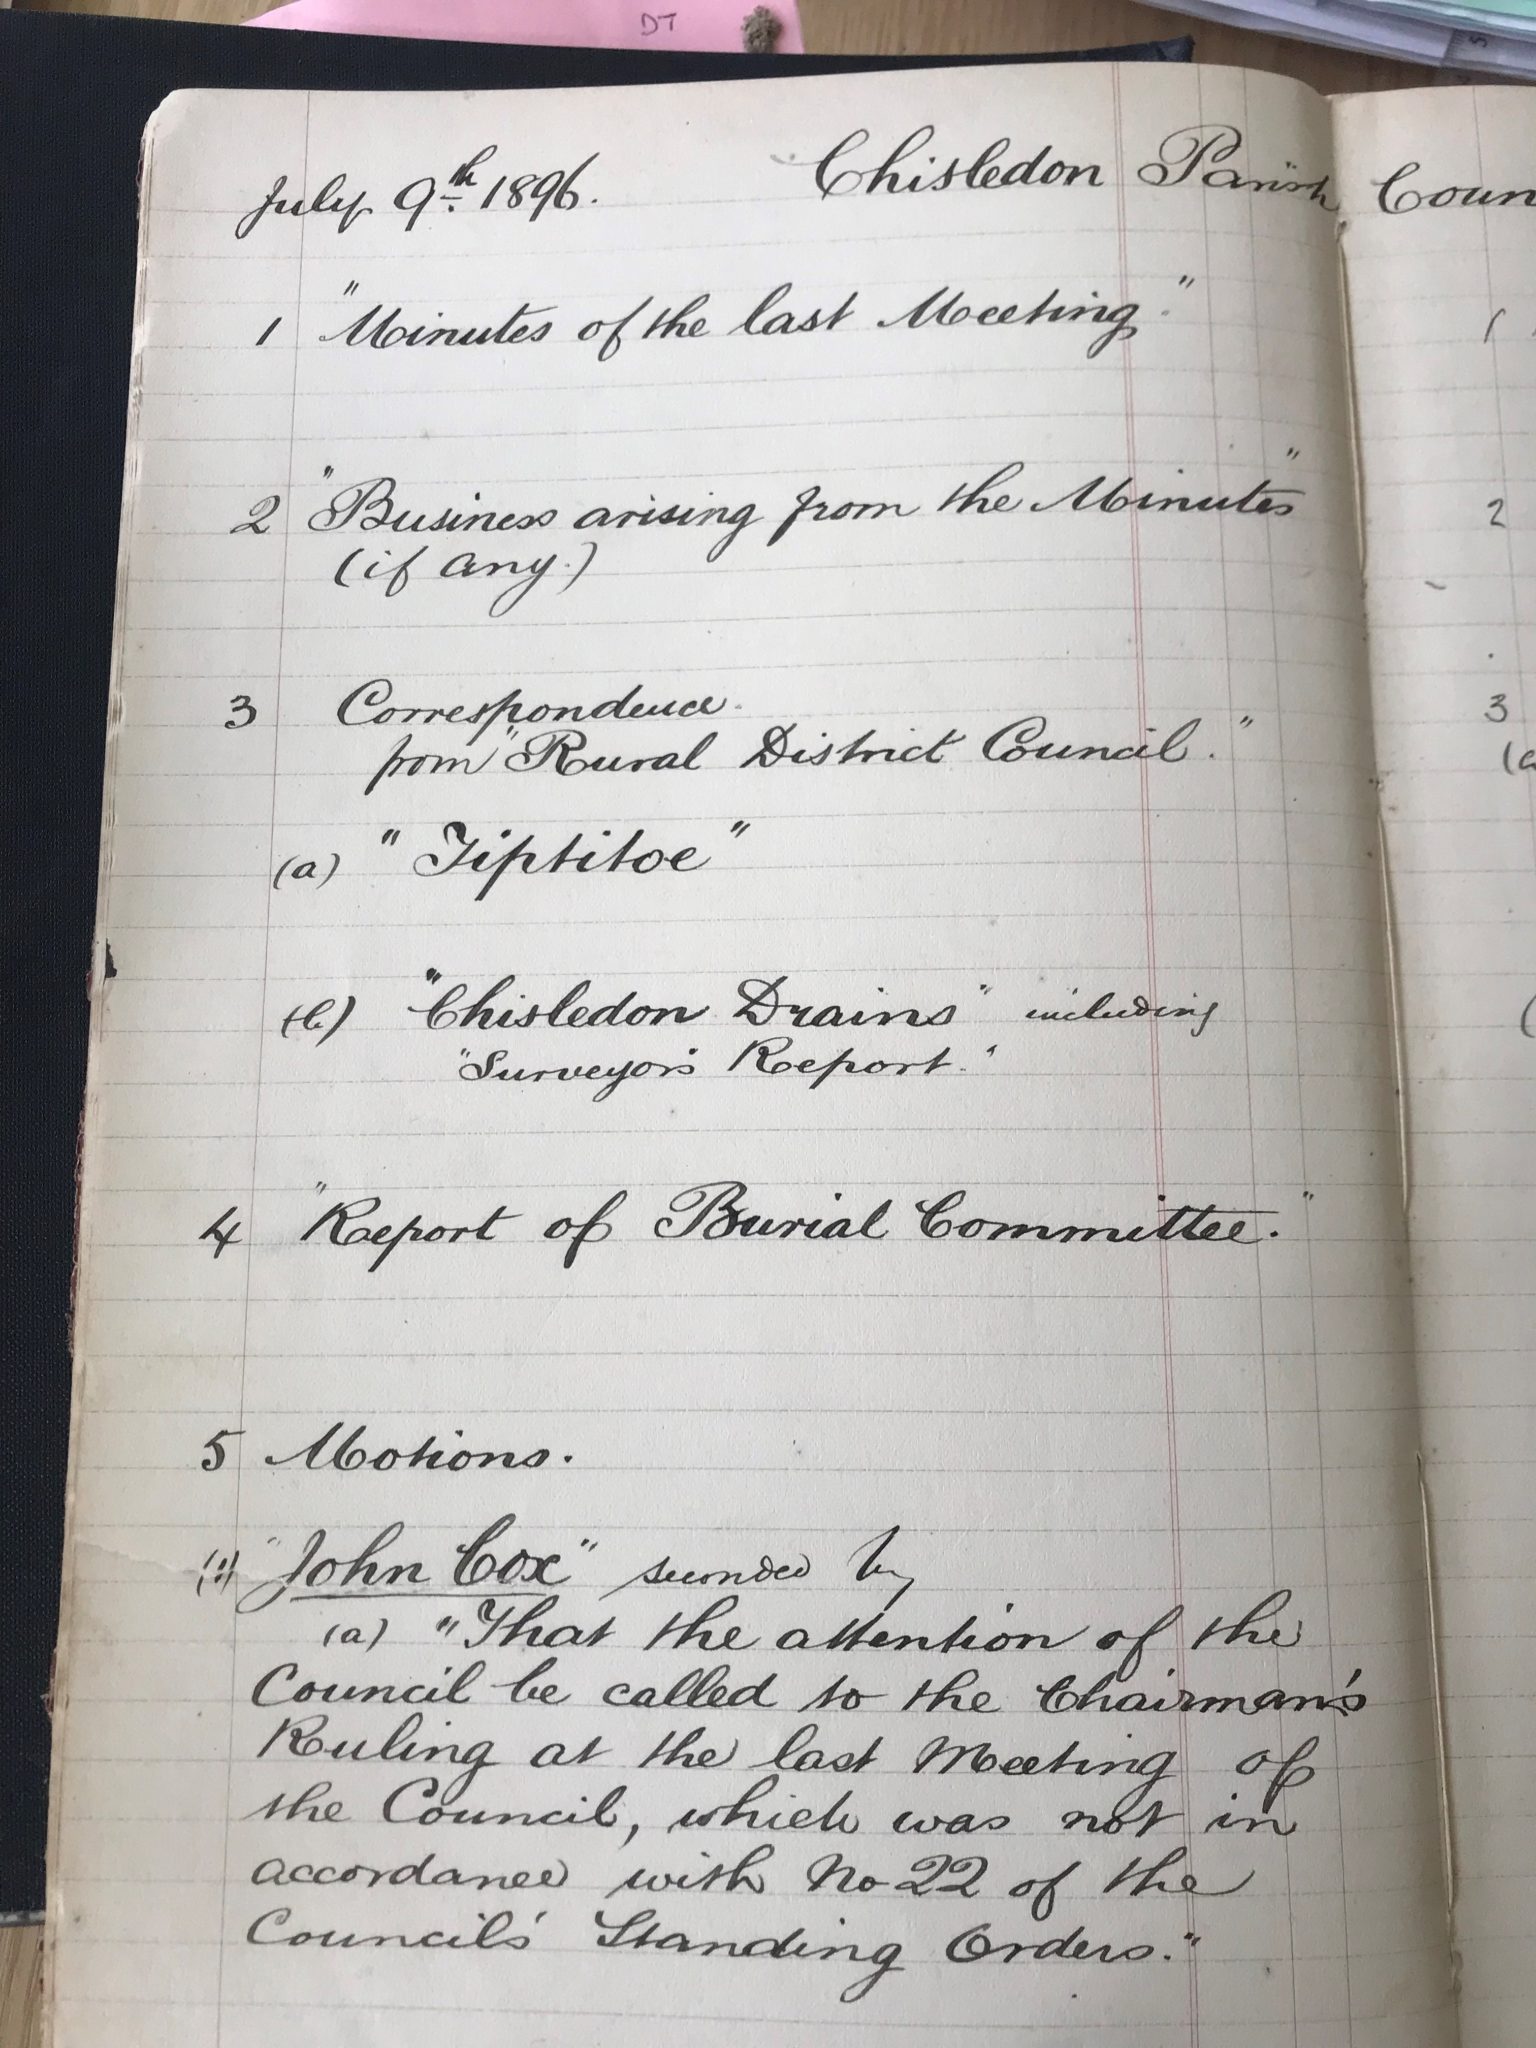 DT
July 9th 1896. Chisledon Parish Coun
1 "Minutes of the last Meeting."
2 "Business arising from the Minutes"
(if any.)
3 Correspondence.
from "Rural District Council."
(a) "Tiptitoe"
(b) "Chisledon Drains" including
"Surveyor's Report."
4 "Report of Burial Committee."
5 Motions.
(1) "John Cox" seconded by
(a) "That the attention of the
Council be called to the Chairman's
Ruling at the last Meeting of
the Council, which was not in
accordance with No 22 of the
Council's Standing Orders."
1
2
3
(a
(